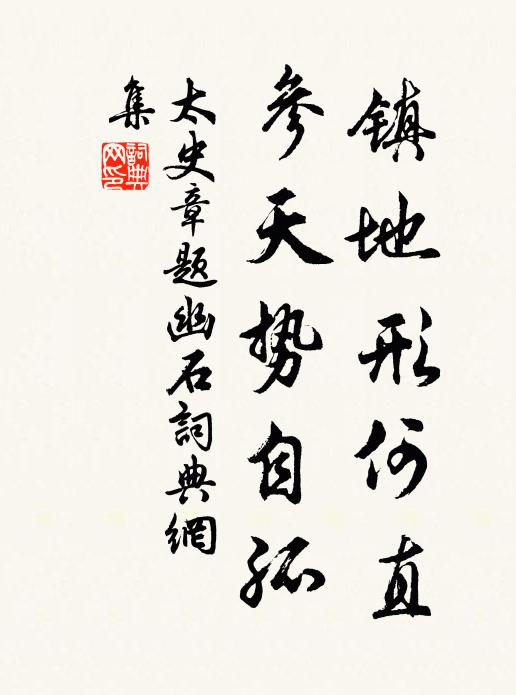 镇地形何直
參天勢自孤
太史章题幽石詞典網
集
詞典网印